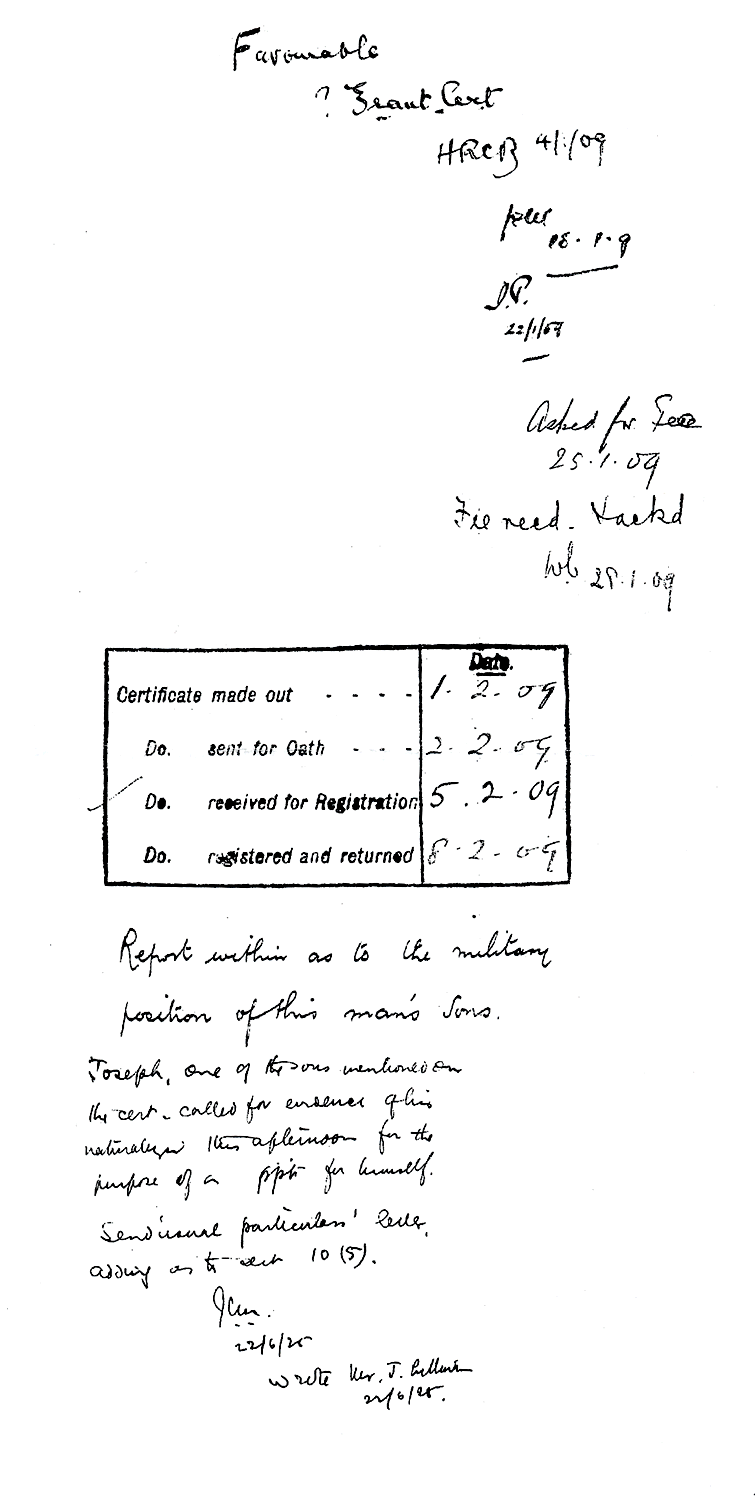 Favourable
? Grant Cert
HRCB 4/1/09
18.1.9
D.P.
22/1/09
Asked for Fee
25.1.09
Fee recd. Hackd
Wb 28.1.09
Date.
Certificate made out - - - - 1. 2. 09
Do. sent for Oath - - - 2. 2. 09
Do. received for Registration 5. 2. 09
Do. registered and returned 8. 2. 09
Report within as to the military
position of this man's sons.
Joseph, one of the sons mentioned on
the cert. called for evidence of his
naturalizn this afternoon for the
purpose of a ppt for himself.
Send 'usual particulars' letter,
adding as to sect 10 (5).
22/6/25
Wrote Mr. J.
22/6/25.